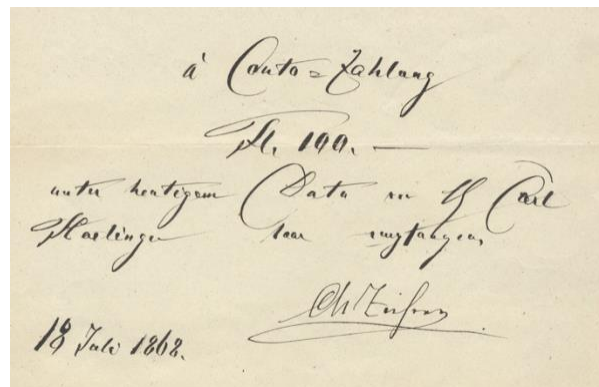 à Conto = Zahlung
Fl. 100. —
unter heutigem Dato von H Carl
Haslinger baar empfangen,
18 Juli 1868.